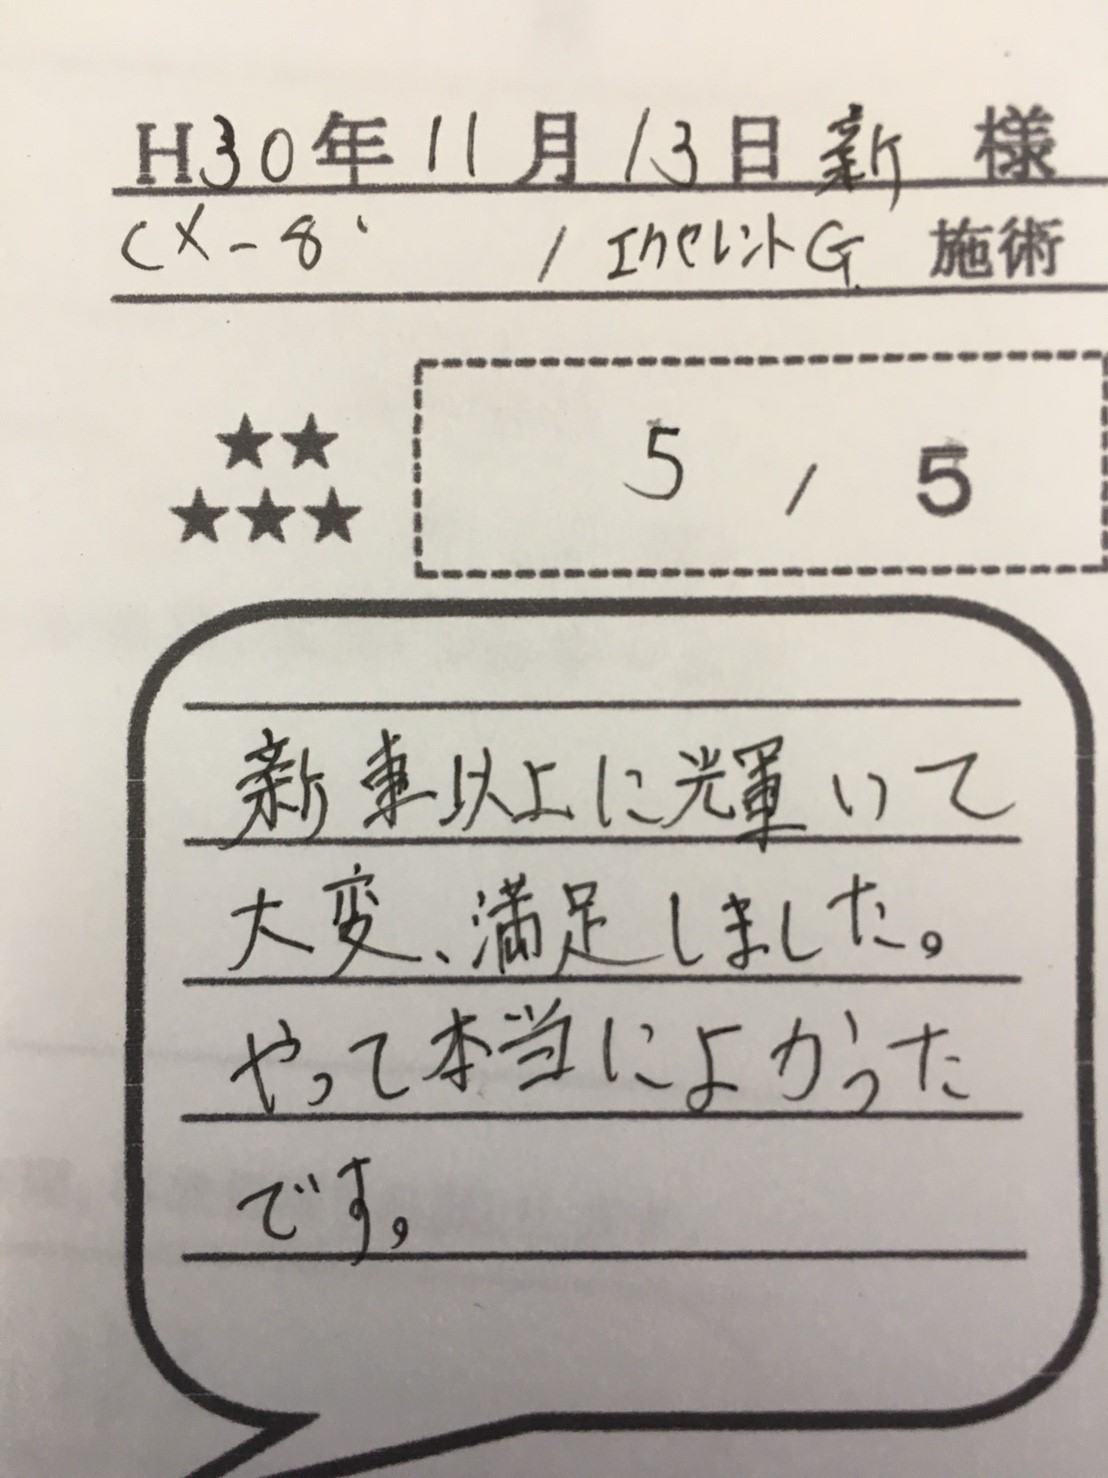 H30年11月13日 新 様
CX-8 / エクセレントG 施術
★★
★★★
5 / 5
新車以上に輝いて
大変、満足しました。
やって本当によかった
です。